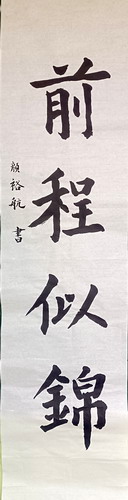 前程似錦
顏裕航 書